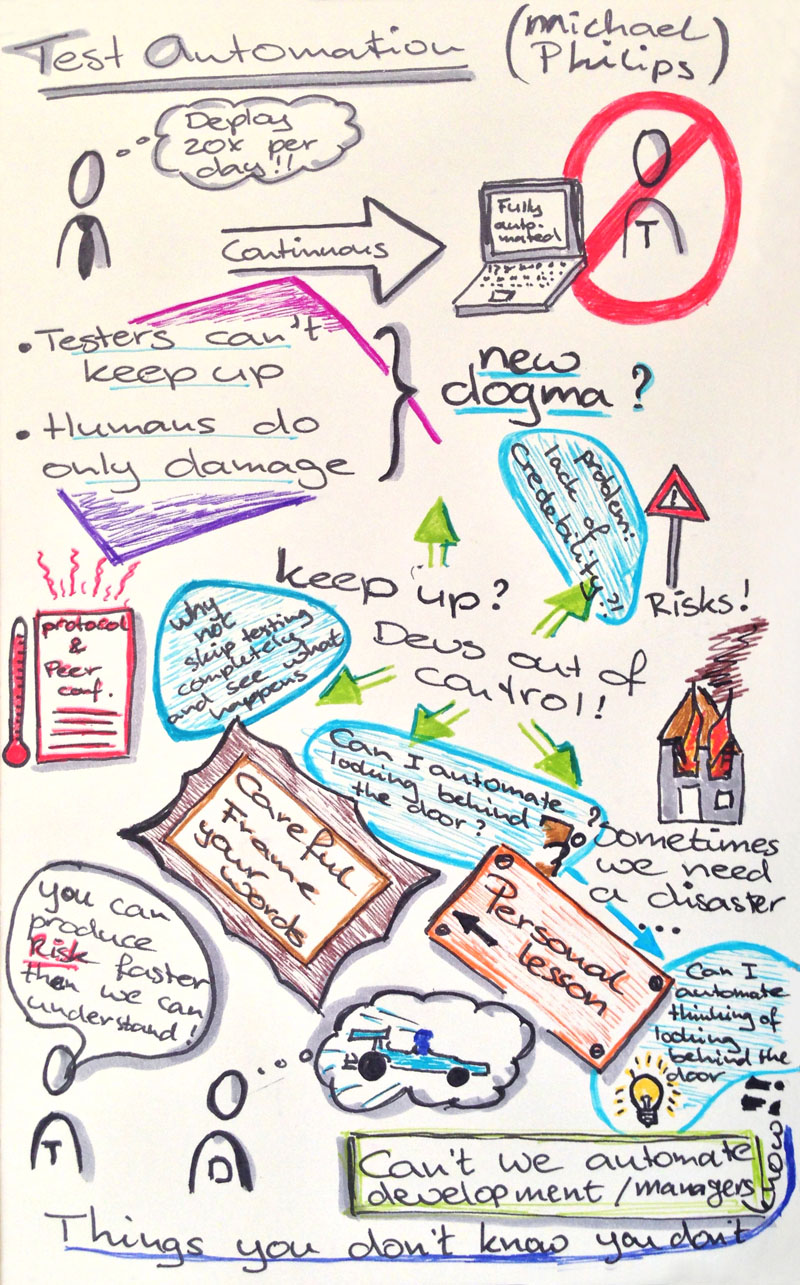 Test Automation
(Michael
Philips)
Deploy
20x per
day!!
Continuous
Fully
auto-
mated
T
• Testers can't
keep up
• Humans do
only damage
new
dogma ?
problem:
lack of
Credebility?!
Risks!
keep up?
Devs out of
control!
protocol
&
Peer
conf.
Why
not
skip testing
completely
and see what
happens
Can I automate
looking behind
the door?
?
Sometimes
we need
a disaster
...
Careful
Frame
your
words
Personal
lesson
you can
produce
Risk faster
then we can
understand!
T
D
Can I
automate
thinking of
looking
behind the
door
!!
Can't we automate
development/managers
Things you don't know you don't
know